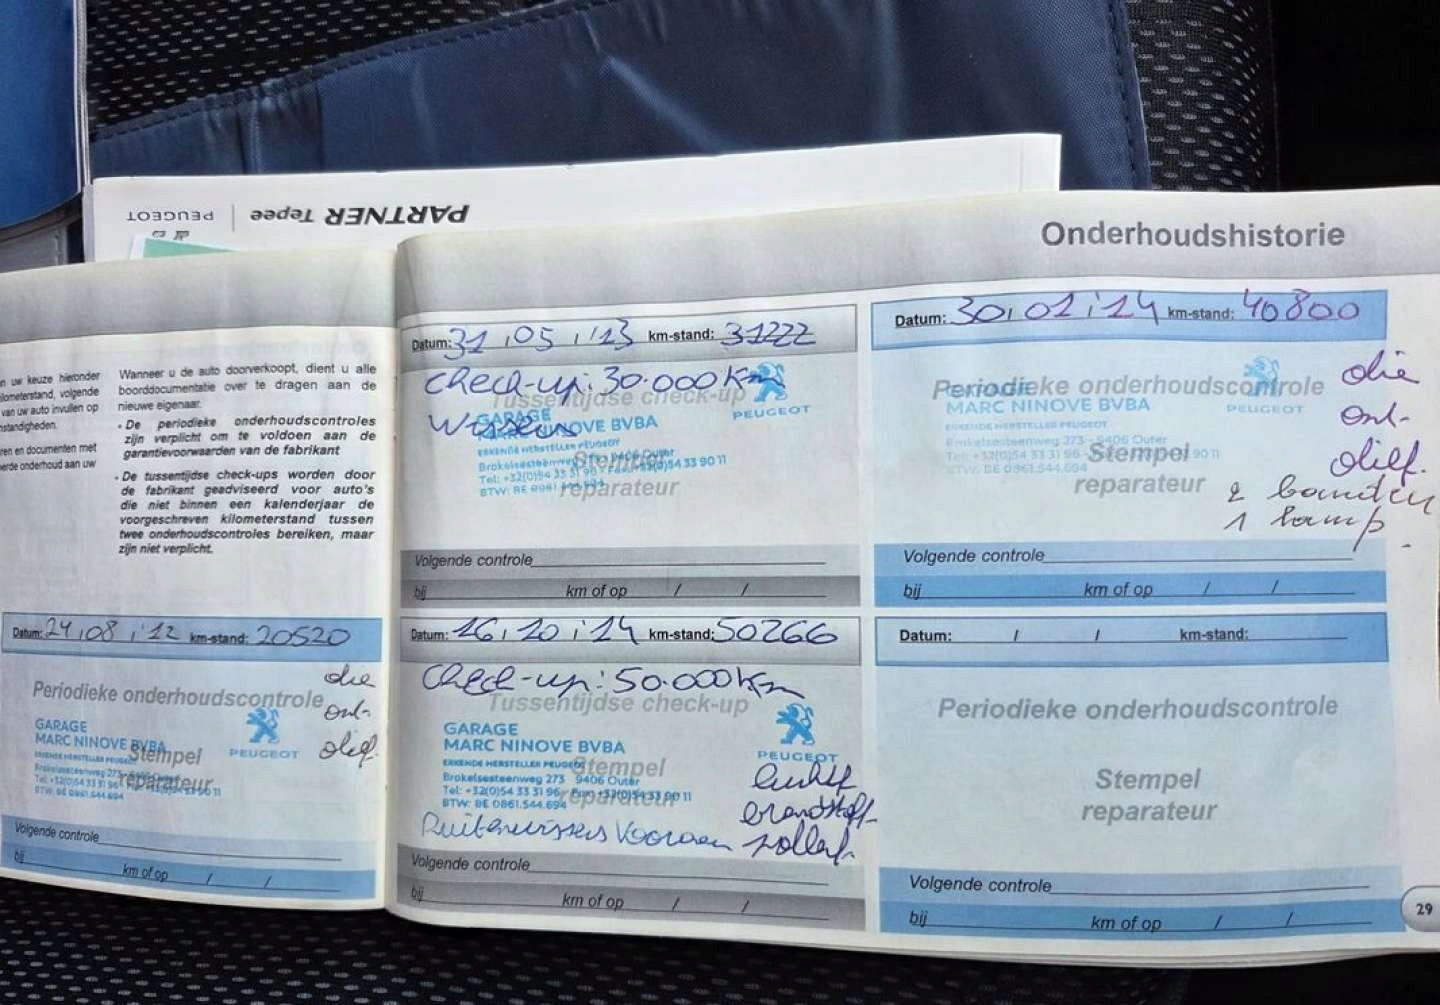 PEUGEOT | PARTNER Tepee
Onderhoudshistorie
n uw keuze hieronder
ilometerstand, volgende
van uw auto invullen op
nstandigheden.
ren en documenten met
eerde onderhoud aan uw
Wanneer u de auto doorverkoopt, dient u alle
boorddocumentatie over te dragen aan de
nieuwe eigenaar.
• De periodieke onderhoudscontroles
zijn verplicht om te voldoen aan de
garantievoorwaarden van de fabrikant
• De tussentijdse check-ups worden door
de fabrikant geadviseerd voor auto's
die niet binnen een kalenderjaar de
voorgeschreven kilometerstand tussen
twee onderhoudscontroles bereiken, maar
zijn niet verplicht.
Datum: 24/08/'12 km-stand: 20520
Periodieke onderhoudscontrole
olie
GARAGE
MARC NINOVE BVBA
ERKENDE HERSTELLER PEUGEOT
Brokelsesteenweg 273
Tel: +32(0)54 33 31 96
BTW: BE 0861.544.694
PEUGEOT
Stempel
reparateur
onl-
olief.
Volgende controle
bij km of op / /
Datum: 31/05/'13 km-stand: 31222
check-up: 30.000 Km
Tussentijdse check-up
wissers
GARAGE
MARC NINOVE BVBA
ERKENDE HERSTELLER PEUGEOT
Brokelsesteenweg 273 9406 Outer
Tel: +32(0)54 33 31 96 +32(0)54 33 90 11
BTW: BE 0861.544.694
PEUGEOT
Stempel
reparateur
Volgende controle
bij km of op / /
Datum: 30/01/'14 km-stand: 40800
Periodieke onderhoudscontrole
olie
MARC NINOVE BVBA
ERKENDE HERSTELLER PEUGEOT
Brokelsesteenweg 273 - 9406 Outer
Tel: +32(0)54 33 31 96 90 11
BTW: BE 0861.544.694
PEUGEOT
Stempel
reparateur
onl-
olief.
2 banden
1 lamp.
Volgende controle
bij km of op / /
Datum: 16/10/'14 km-stand: 50266
check-up: 50.000 Km
Tussentijdse check-up
GARAGE
MARC NINOVE BVBA
ERKENDE HERSTELLER PEUGEOT
Brokelsesteenweg 273 9406 Outer
Tel: +32(0)54 33 31 96 Fax: +32(0)54 33 90 11
BTW: BE 0861.544.694
PEUGEOT
Stempel
reparateur
luchtf
brandstoff-
pollenf.
Ruitenwissers Vooraan
Volgende controle
bij km of op / /
Datum: / / km-stand:
Periodieke onderhoudscontrole
Stempel
reparateur
Volgende controle
bij km of op / /
29